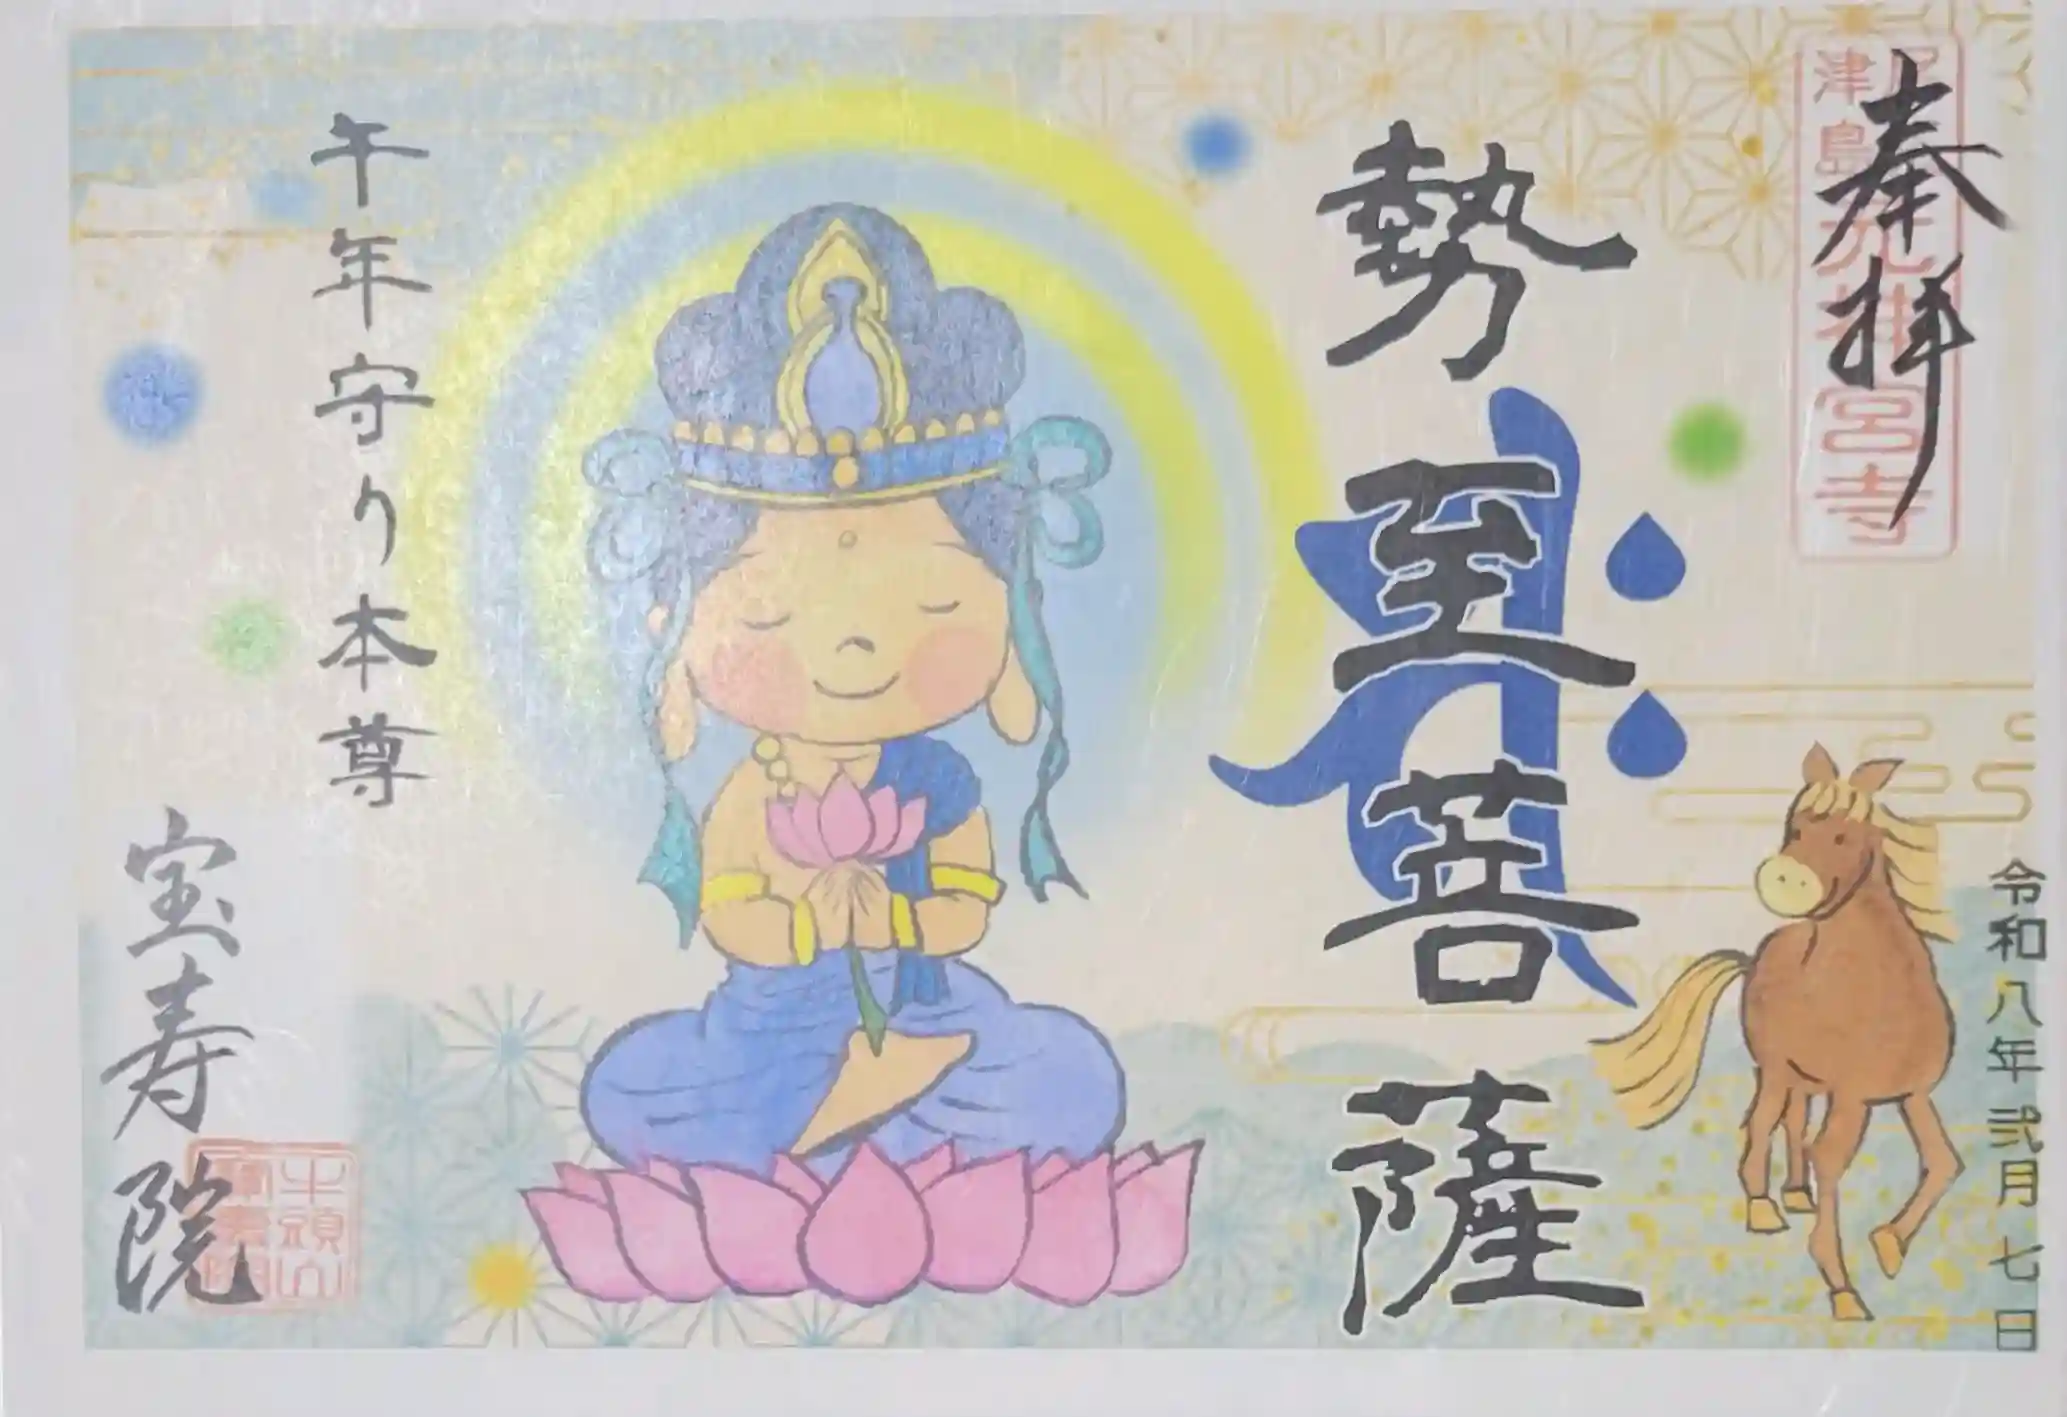 奉拝
勢至菩薩
令和八年弐月七日
午年守り本尊
宝寿院